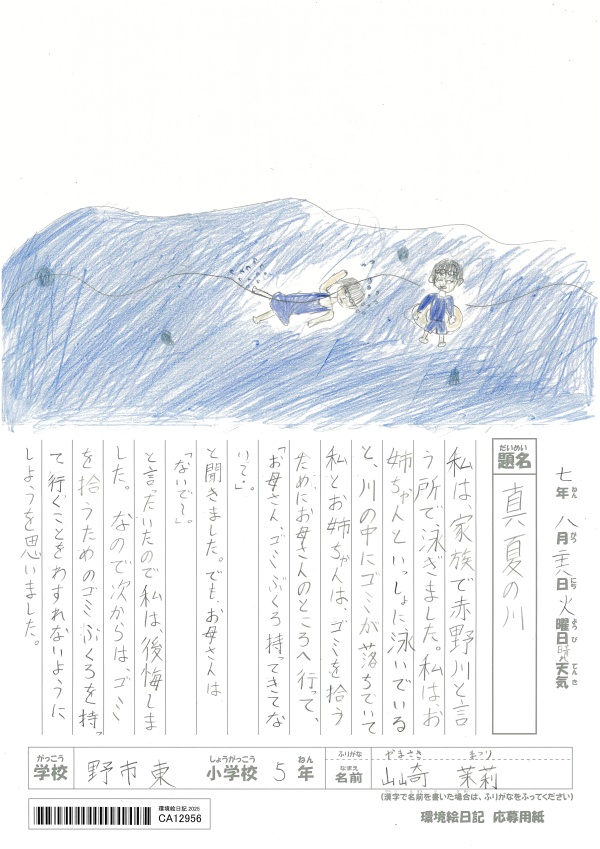 七年八月実日火曜日時々天気
ねん がつ にち ようび てんき
だいめい
題名
真夏の川
私は、家族で赤野川と言
う所で、泳ぎました。私は、お
姉ちゃんといっしょに泳いでいる
と、川の中にゴミが落ちていて
私とお姉ちゃんは、ゴミを拾う
ためにお母さんのところへ行って、
「お母さん、ゴミぶくろ持ってきてな
い〜?」。
と聞きました。でも、お母さんは
「ないで〜」。
と言っていたので私は、後悔しま
した。なので次からは、ゴミ
を拾うためのゴミぶくろを持っ
て行くことをわすれないように
しようを思いました。
がっこう
学校
野市東
しょうがっこう
小学校
5
ねん
年
ふりがな
やまさき まつり
なまえ
名前
山崎 茉莉
(漢字で名前を書いた場合は、ふりがなをふってください)
環境絵日記 2025
CA12956
環境絵日記 応募用紙